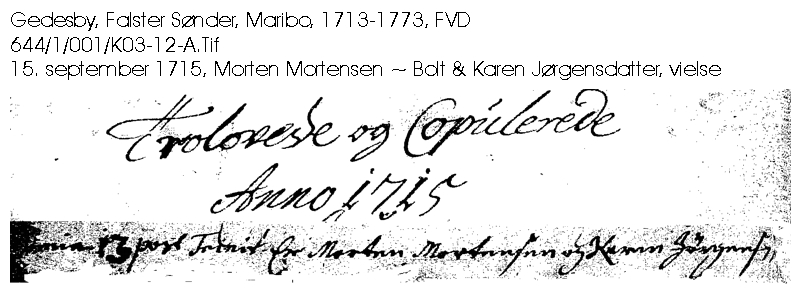 Gedesby, Falster Sønder, Maribo, 1713-1773, FVD
644/1/001/K03-12-A.Tif
15. september 1715, Morten Mortensen ~ Bolt & Karen Jørgensdatter, vielse
Trolovede og Copulerede
Anno 1715
13 post Morten Mortensen og Karen Jörgensd,